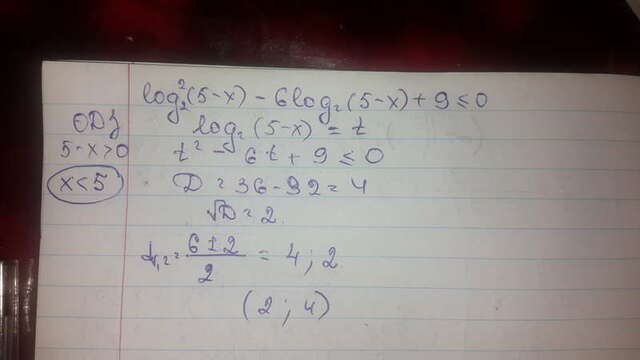 log₂²(5-x) - 6log₂(5-x) + 9 ≤ 0
ОДЗ
log₂(5-x) = t
5-x>0
t² - 6t + 9 ≤ 0
x<5
D = 36-32 = 4
√D = 2
t₁,₂ = (6±2)/2 = 4; 2
(2; 4)